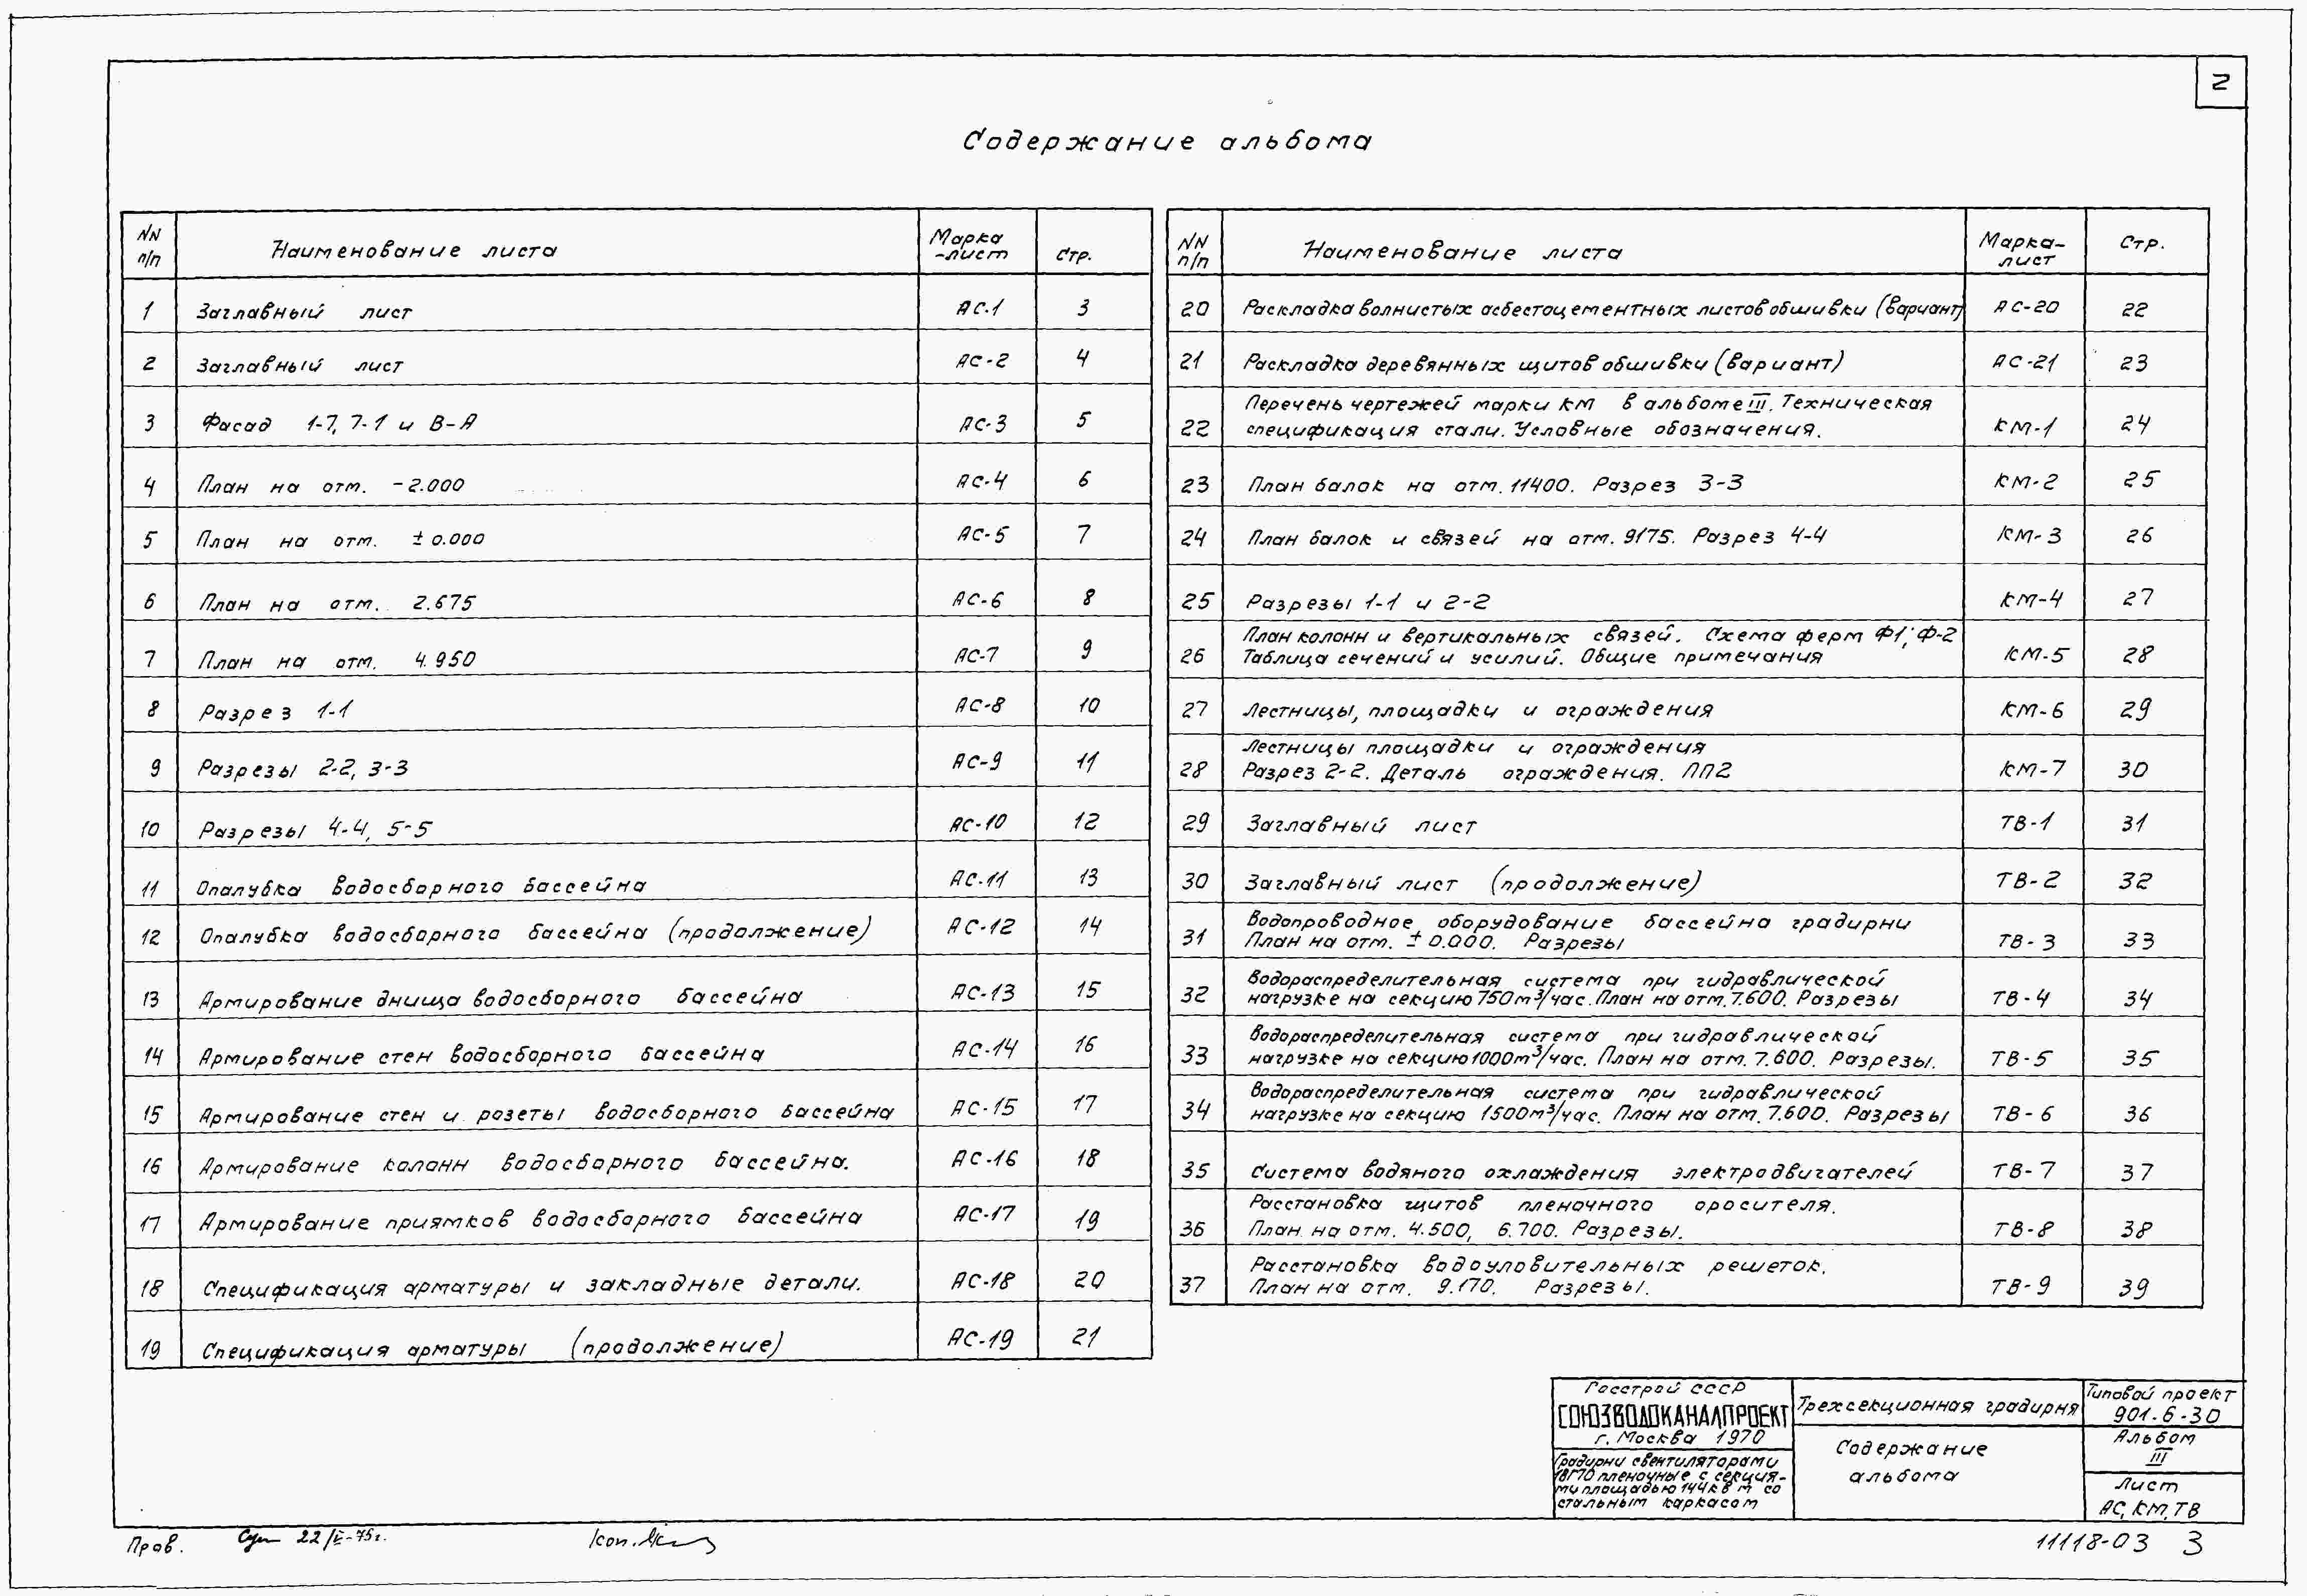 2
Содержание альбома
NN п/п Наименование листа Марка-лист Стр.
1 Заглавный лист АС-1 3
2 Заглавный лист АС-2 4
3 Фасад 1-7, 7-1 и В-А АС-3 5
4 План на отм. -2.000 АС-4 6
5 План на отм. ±0.000 АС-5 7
6 План на отм. 2.675 АС-6 8
7 План на отм. 4.950 АС-7 9
8 Разрез 1-1 АС-8 10
9 Разрезы 2-2, 3-3 АС-9 11
10 Разрезы 4-4, 5-5 АС-10 12
11 Опалубка водосборного бассейна АС-11 13
12 Опалубка водосборного бассейна (продолжение) АС-12 14
13 Армирование днища водосборного бассейна АС-13 15
14 Армирование стен водосборного бассейна АС-14 16
15 Армирование стен и розеты водосборного бассейна АС-15 17
16 Армирование колонн водосборного бассейна. АС-16 18
17 Армирование приямков водосборного бассейна АС-17 19
18 Спецификация арматуры и закладные детали. АС-18 20
19 Спецификация арматуры (продолжение) АС-19 21
NN п/п Наименование листа Марка-лист Стр.
20 Раскладка волнистых асбестоцементных листов обшивки (вариант) АС-20 22
21 Раскладка деревянных щитов обшивки (вариант) АС-21 23
Перечень чертежей марки КМ в альбоме III. Техническая
22 спецификация стали. Условные обозначения. КМ-1 24
23 План балок на отм. 11400. Разрез 3-3 КМ-2 25
24 План балок и связей на отм. 9175. Разрез 4-4 КМ-3 26
25 Разрезы 1-1 и 2-2 КМ-4 27
План колонн и вертикальных связей. Схема ферм Ф1; Ф-2
26 Таблица сечений и усилий. Общие примечания КМ-5 28
27 Лестницы, площадки и ограждения КМ-6 29
Лестницы площадки и ограждения
28 Разрез 2-2. Деталь ограждения. ЛП2 КМ-7 30
29 Заглавный лист ТВ-1 31
30 Заглавный лист (продолжение) ТВ-2 32
Водопроводное оборудование бассейна градирни
31 План на отм. ±0.000. Разрезы ТВ-3 33
Водораспределительная система при гидравлической
32 нагрузке на секцию 750м³/час. План на отм. 7.600. Разрезы ТВ-4 34
Водораспределительная система при гидравлической
33 нагрузке на секцию 1000м³/час. План на отм. 7.600. Разрезы. ТВ-5 35
Водораспределительная система при гидравлической
34 нагрузке на секцию 1500м³/час. План на отм. 7.600. Разрезы ТВ-6 36
35 Система водяного охлаждения электродвигателей ТВ-7 37
Расстановка щитов пленочного оросителя.
36 План на отм. 4.500, 6.700. Разрезы. ТВ-8 38
Расстановка водоуловительных решеток.
37 План на отм. 9.170. Разрезы. ТВ-9 39
Госстрой СССР
СОЮЗВОДОКАНАЛПРОЕКТ
г. Москва 1970
Градирни с вентиляторами
1ВГ70 пленочные с секция-
ми площадью 144кв м со
стальным каркасом
Трехсекционная градирня
Содержание
альбома
Типовой проект
901-6-30
Альбом
III
Лист
АС, КМ, ТВ
Пров. 22/V-75г. Коп.
11118-03 3